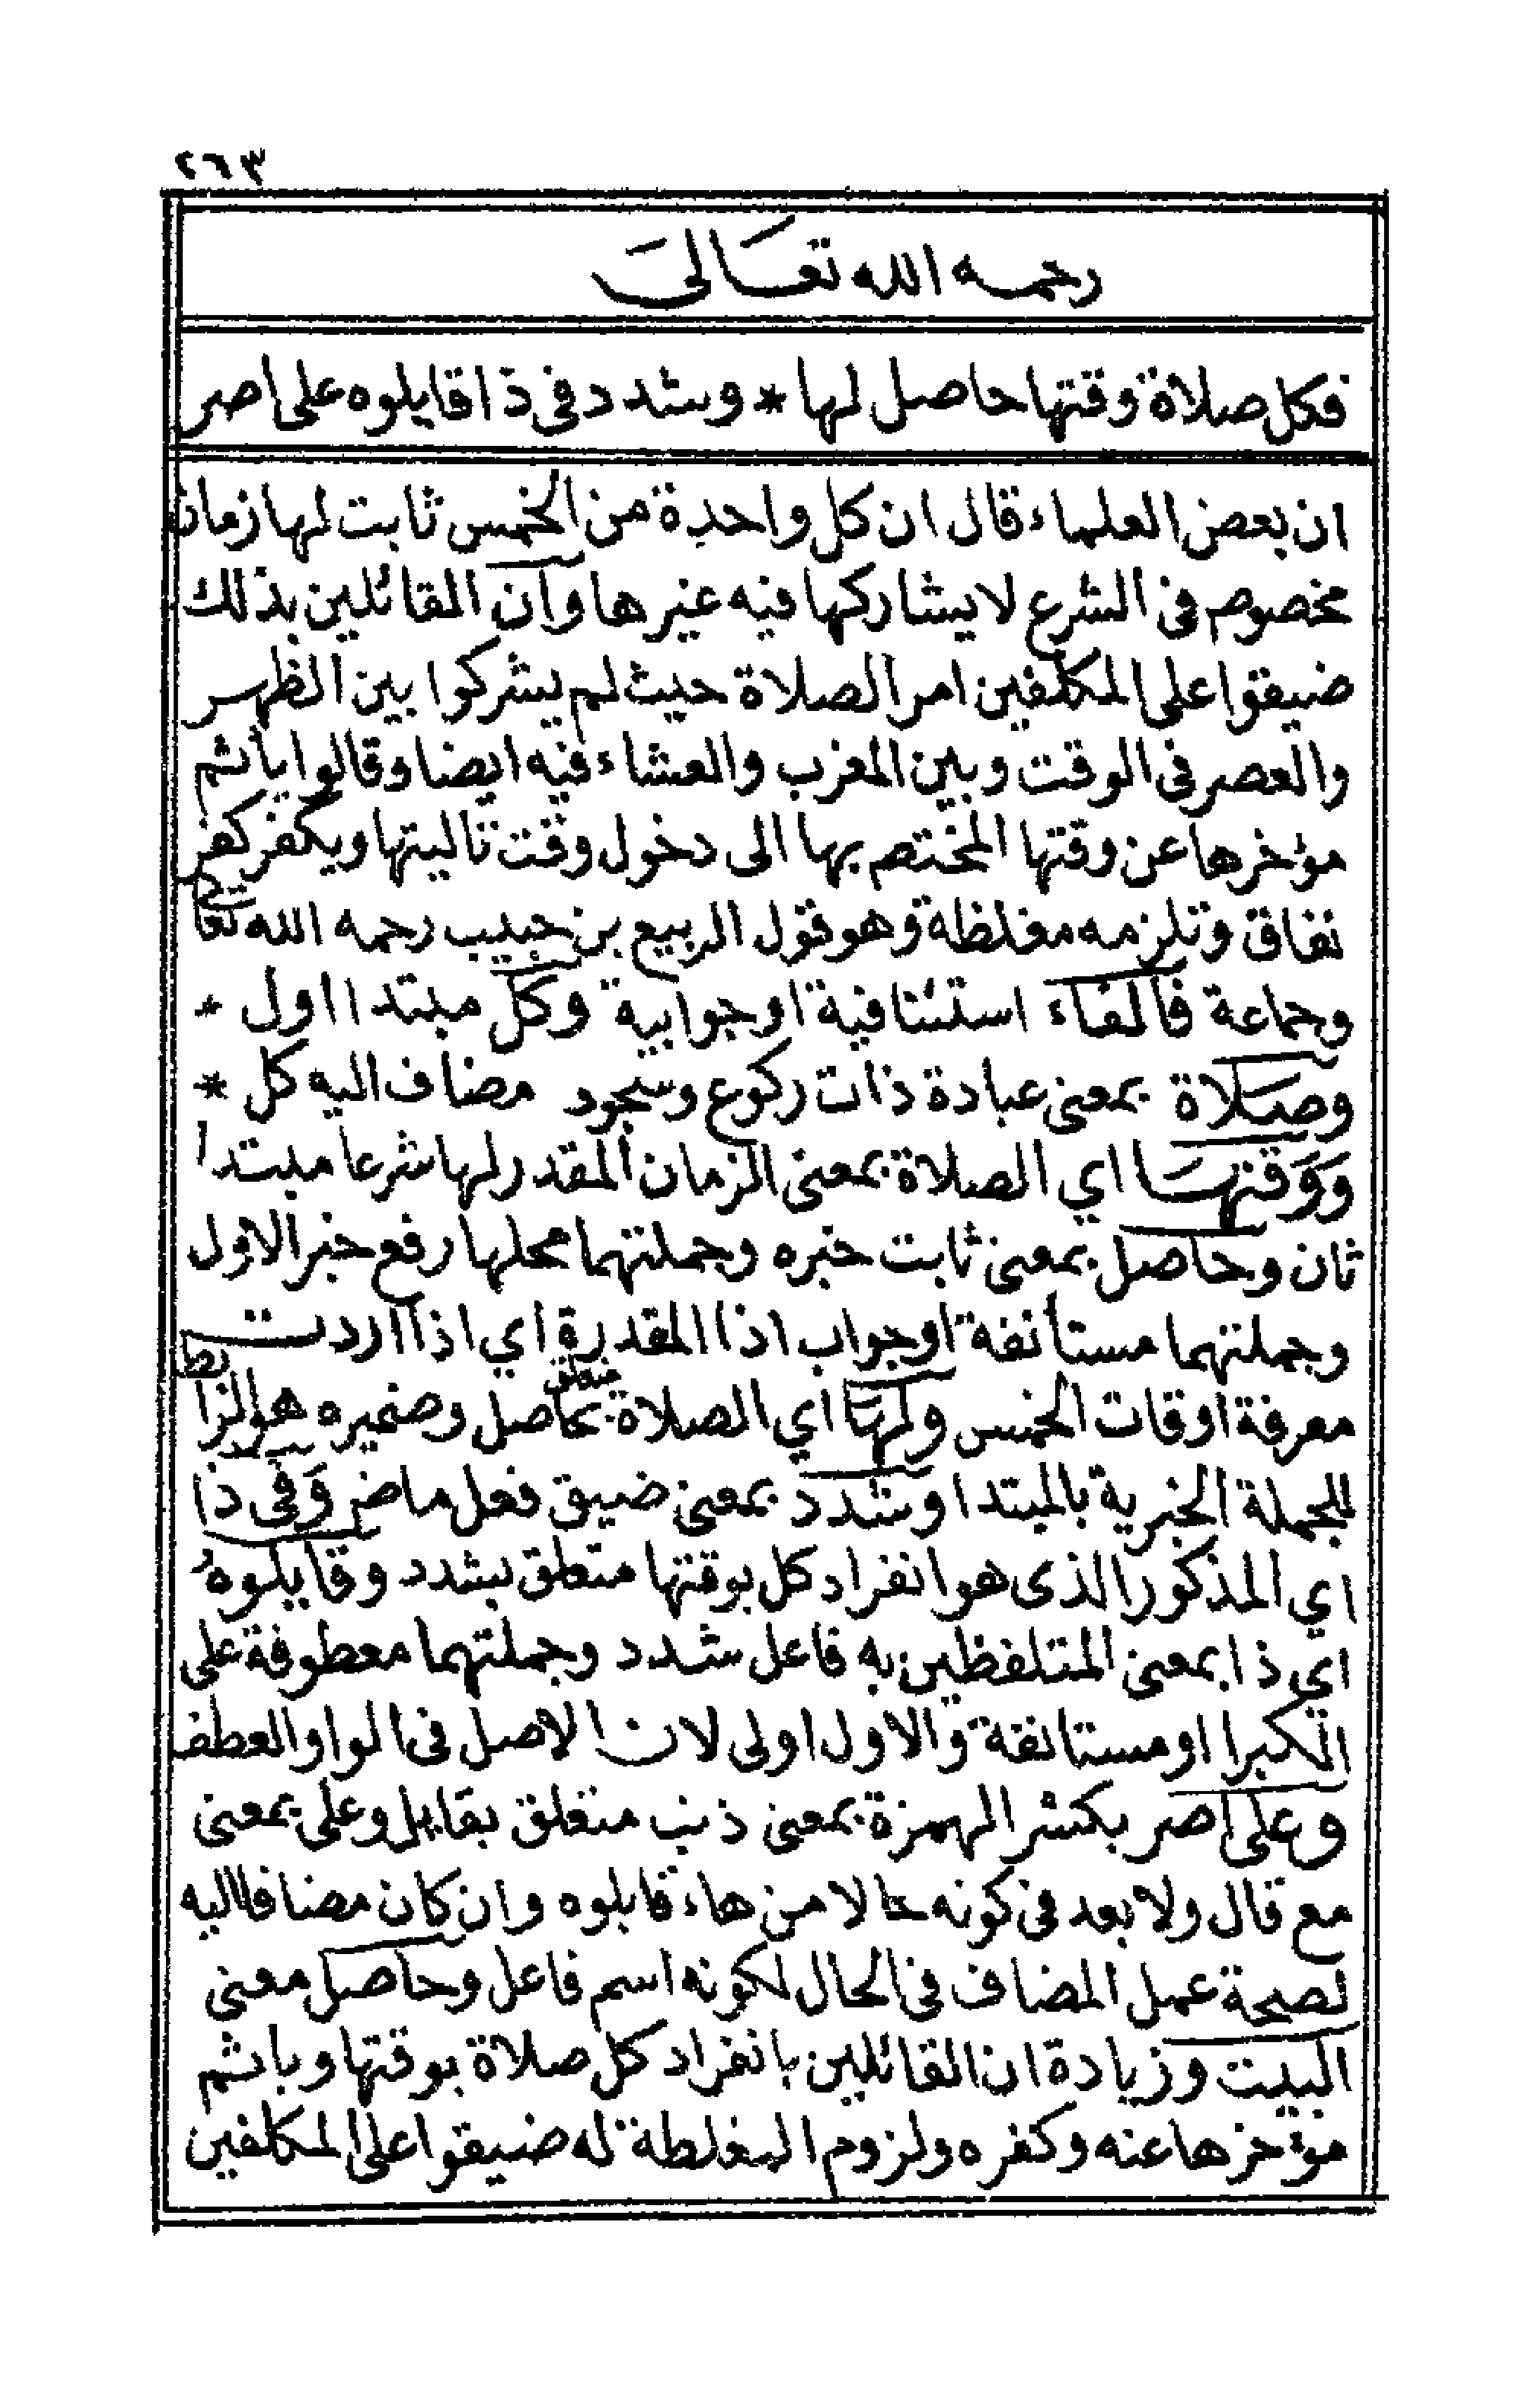 ٢٦٣
رحمه الله تعالى
فكل صلاة وقتها حاصل لها * وشدد في ذا قايلوه على اصر
ان بعض العلماء قال ان كل واحدة من الخمس ثابت لها زمان
مخصوص في الشرع لا يشاركها فيه غيرها وان القائلين بذلك
ضيقوا على المكلفين امر الصلاة حيث لم يشركوا بين الظهر
والعصر في الوقت وبين المغرب والعشاء فيه ايضا وقالوا يأثم
مؤخرها عن وقتها المختص بها الى دخول وقت تاليتها ويكفر كفر
نفاق وتلزمه مغلظة وهو قول الربيع بن حبيب رحمه الله تعالى
وجماعة فالفاء استئنافية او جوابية وكل مبتدا اول *
وصلاة بمعنى عبادة ذات ركوع وسجود مضاف اليه كل *
وَوَقتها اي الصلاة بمعنى الزمان المقدر لها شرعا مبتدا
ثان وحاصل بمعنى ثابت خبره وجملتهما محلها رفع خبر الاول
وجملتهما مستأنفة او جواب اذا المقدرة اي اذا اردت
معرفة اوقات الخمس ولها اي الصلاة متعلق بحاصل وضميره هو الرابط
للجملة الخبرية بالمبتدا وشدد بمعنى ضيق فعل ماض وَفي ذا
اي المذكور الذي هو انفراد كل بوقتها متعلق بشدد وقايلوهُ
اي ذا بمعنى المتلفظين به فاعل شدد وجملتهما معطوفة على
الكبرا او مستانفة والاول اولى لان الاصل في الواو العطف
وعلى اصر بكسر الهمزة بمعنى ذنب متعلق بقايل وعلى بمعنى
مع قال ولا بعد في كونه حالا من هاء قايلوه وان كان مضافا اليه
لصحة عمل المضاف في الحال لكونه اسم فاعل وحاصل معنى
البيت وزيادة ان القائلين بانفراد كل صلاة بوقتها وباثم
مؤخرها عنه وكفره ولزوم المغلطة له ضيقوا على المكلفين